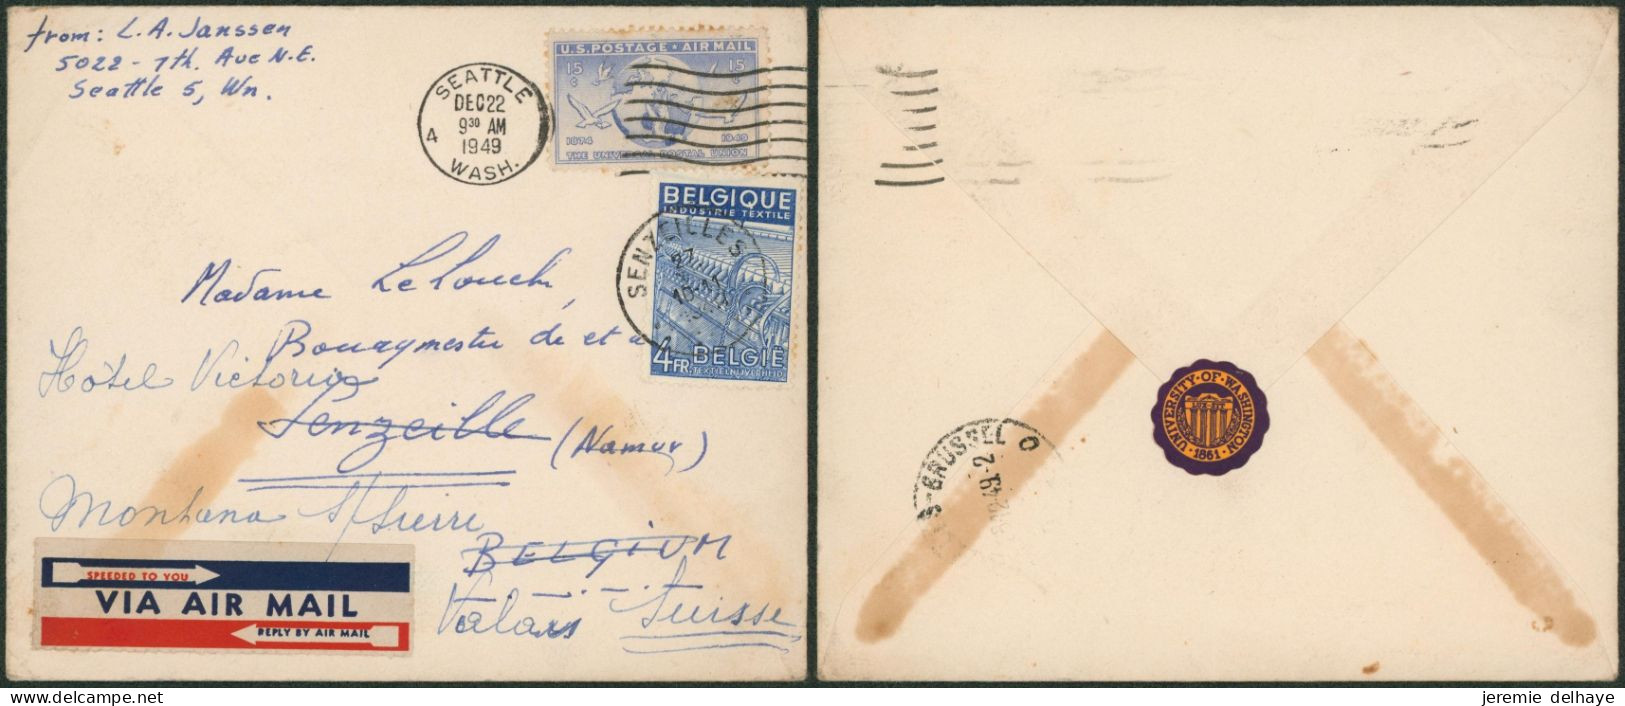 from: L.A. Janssen
5022 - 7th. Ave N.E.
Seattle 5, Wn.
SEATTLE
DEC 22
9 30 AM
1949
4
WASH.
U.S. POSTAGE AIR MAIL
15 c
15 c
1874
1949
THE UNIVERSAL POSTAL UNION
BELGIQUE
INDUSTRIE TEXTILE
SENZEILLES
4 FR
BELGIË
TEXTIELNIJVERHEID
Madame Lelouchi,
Bourgmestre de et à
Hôtel Victoria
Senzeille (Namur)
Montana s/Sierre
BELGIUM
Valais Suisse
SPEEDED TO YOU
VIA AIR MAIL
REPLY BY AIR MAIL
UNIVERSITY · OF · WASHINGTON
LUX SIT
· 1861 ·
BRUSSEL
jeremie delhaye